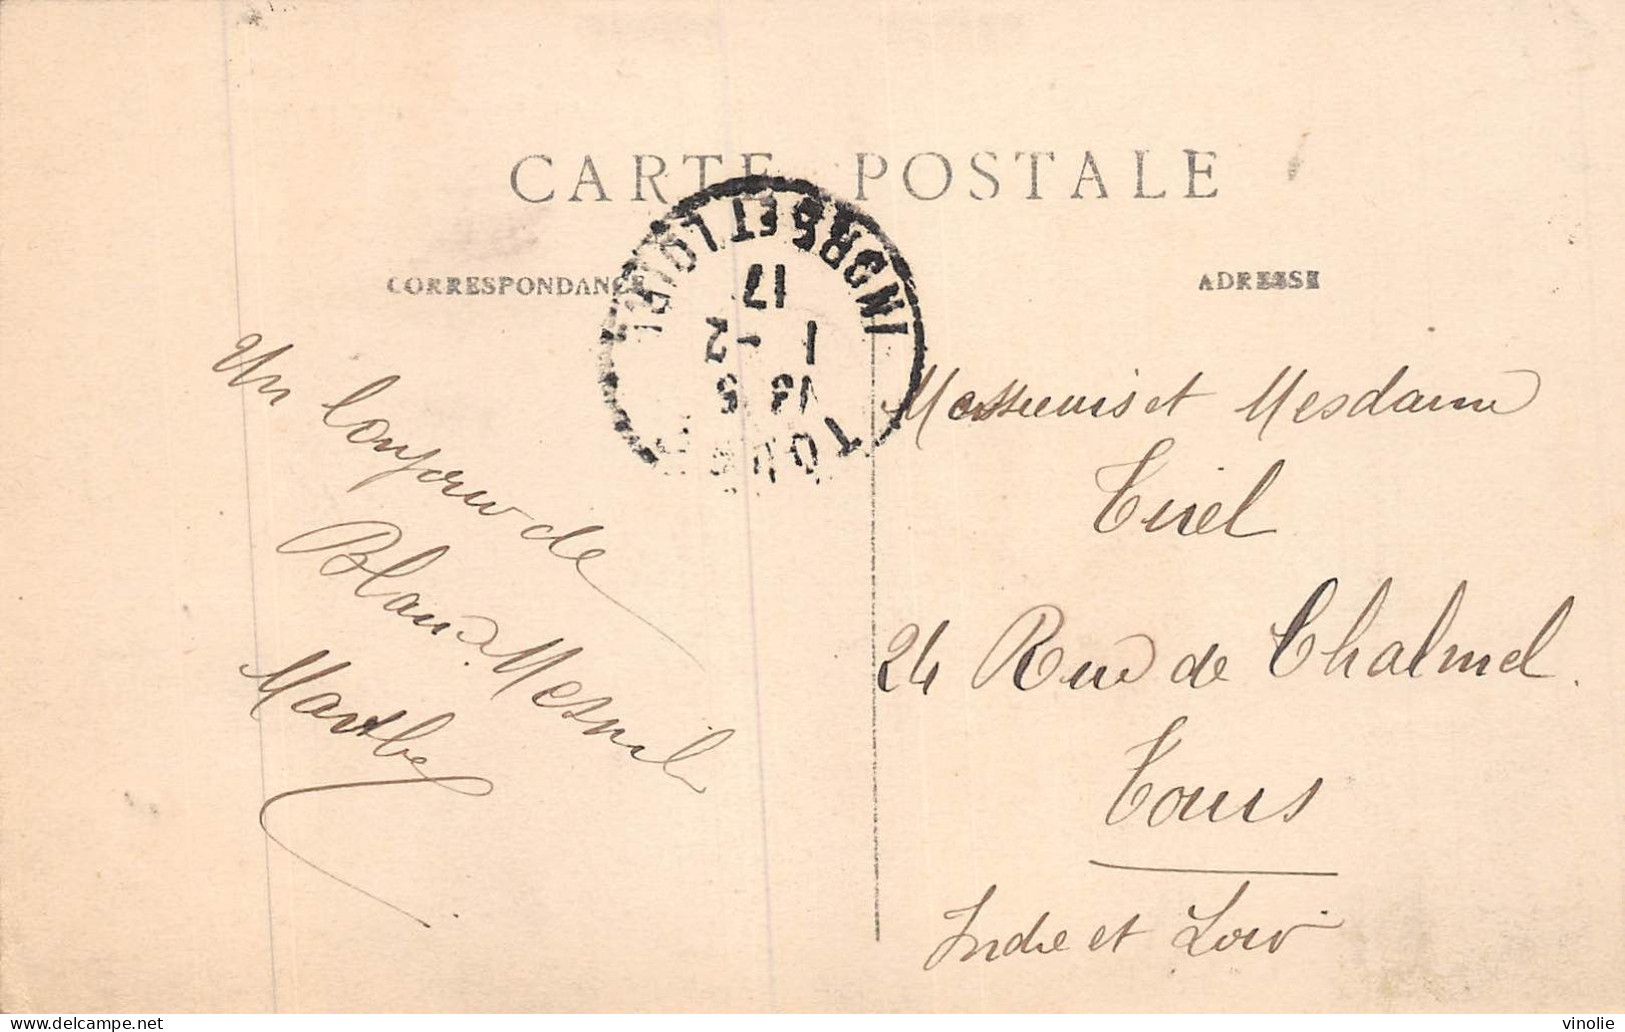 CARTE POSTALE
CORRESPONDANCE
ADRESSE
TOURS
13 5
1 - 2
17
INDRE ET LOIRE
Un bonjour de
Blanc Mesnil
Marthe
Messieurs et Mesdame
Tirel
24 Rue de Chalmel.
Tours
Indre et Loire
delcampe.net
vinolie